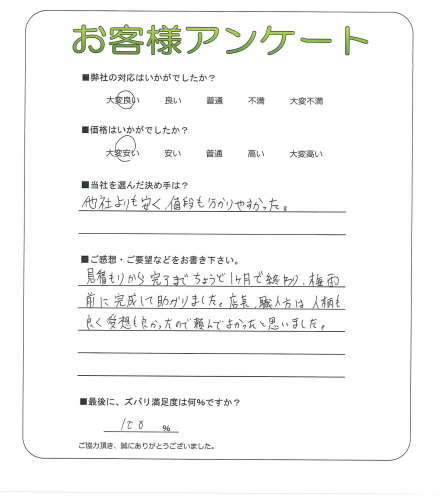 お客様アンケート
■弊社の対応はいかがでしたか？
大変良い 良い 普通 不満 大変不満
■価格はいかがでしたか？
大変安い 安い 普通 高い 大変高い
■当社を選んだ決め手は？
他社よりも安く、値段も分かりやすかった。
■ご感想・ご要望などをお書き下さい。
見積もりから完了までちょうど1ヶ月で終わり、梅雨
前に完成して助かりました。店長、職人方は人柄も
良く愛想も良かったので頼んでよかったと思いました。
■最後に、ズバリ満足度は何％ですか？
100 %
ご協力頂き、誠にありがとうございました。